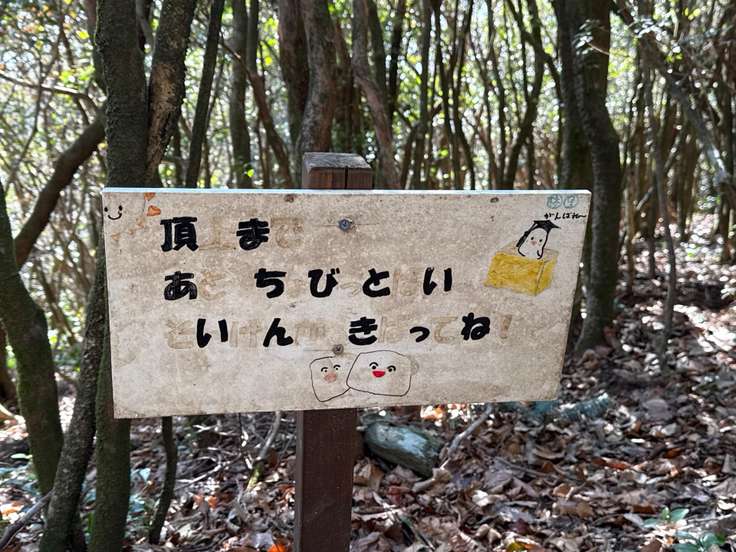 がんばれ~
頂上まで
あと ちょびっとばい
そいけんが きばってね!